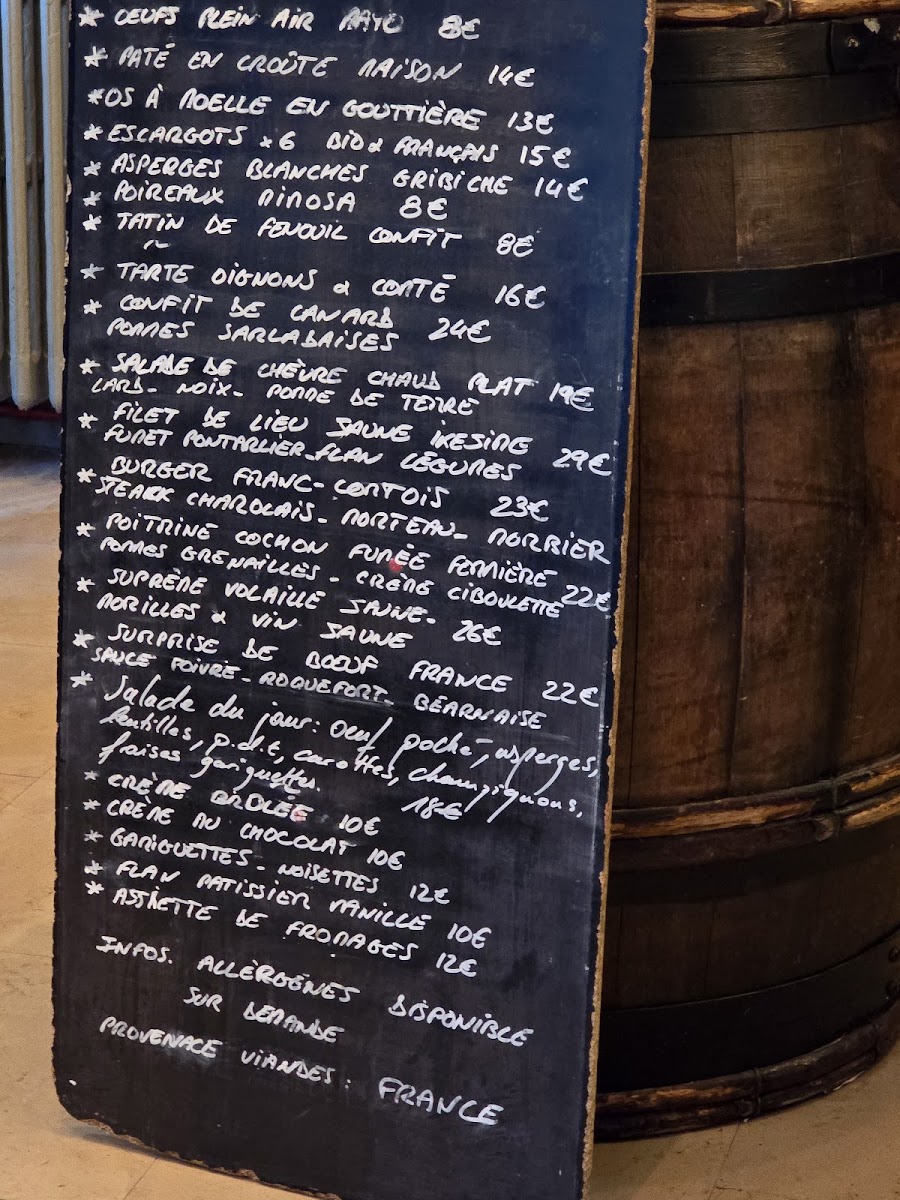 * OEUFS PLEIN AIR MAYO 8€
* PATÉ EN CROÛTE MAISON 14€
* OS À MOELLE EN GOUTTIÈRE 13€
* ESCARGOTS x 6 BIO & FRANÇAIS 15€
* ASPERGES BLANCHES GRIBICHE 14€
* POIREAUX MIMOSA 8€
* TATIN DE FENOUIL CONFIT 8€
~
* TARTE OIGNONS & COMTÉ 16€
* CONFIT DE CANARD 24€
POMMES SARLADAISES
* SALADE DE CHÈVRE CHAUD PLAT 19€
LARD - NOIX - POMME DE TERRE
* FILET DE LIEU JAUNE 29€
FUMET PONTARLIER - FLAN LÉGUMES
* BURGER FRANC-COMTOIS 23€
STEAK CHAROLAIS - MORTEAU - MORBIER
* POITRINE COCHON FUMÉE FERMIÈRE 22€
POMMES GRENAILLES - CRÈME CIBOULETTE
* SUPRÈME VOLAILLE JAUNE - 26€
MORILLES & VIN JAUNE
* SURPRISE DE BOEUF FRANCE 22€
SAUCE POIVRE - ROQUEFORT - BÉARNAISE
* Salade du jour : oeuf poché, asperges,
lentilles, p.d.t, carottes, champignons,
fraises gariguettes. 18€
* CRÈME BRÛLÉE 10€
* CRÈME AU CHOCOLAT 10€
* GARIGUETTES - NOISETTES 12€
* FLAN PATISSIER VANILLE 10€
* ASSIETTE DE FROMAGES 12€
INFOS. ALLERGÈNES DISPONIBLE
SUR DEMANDE
PROVENACE VIANDES : FRANCE